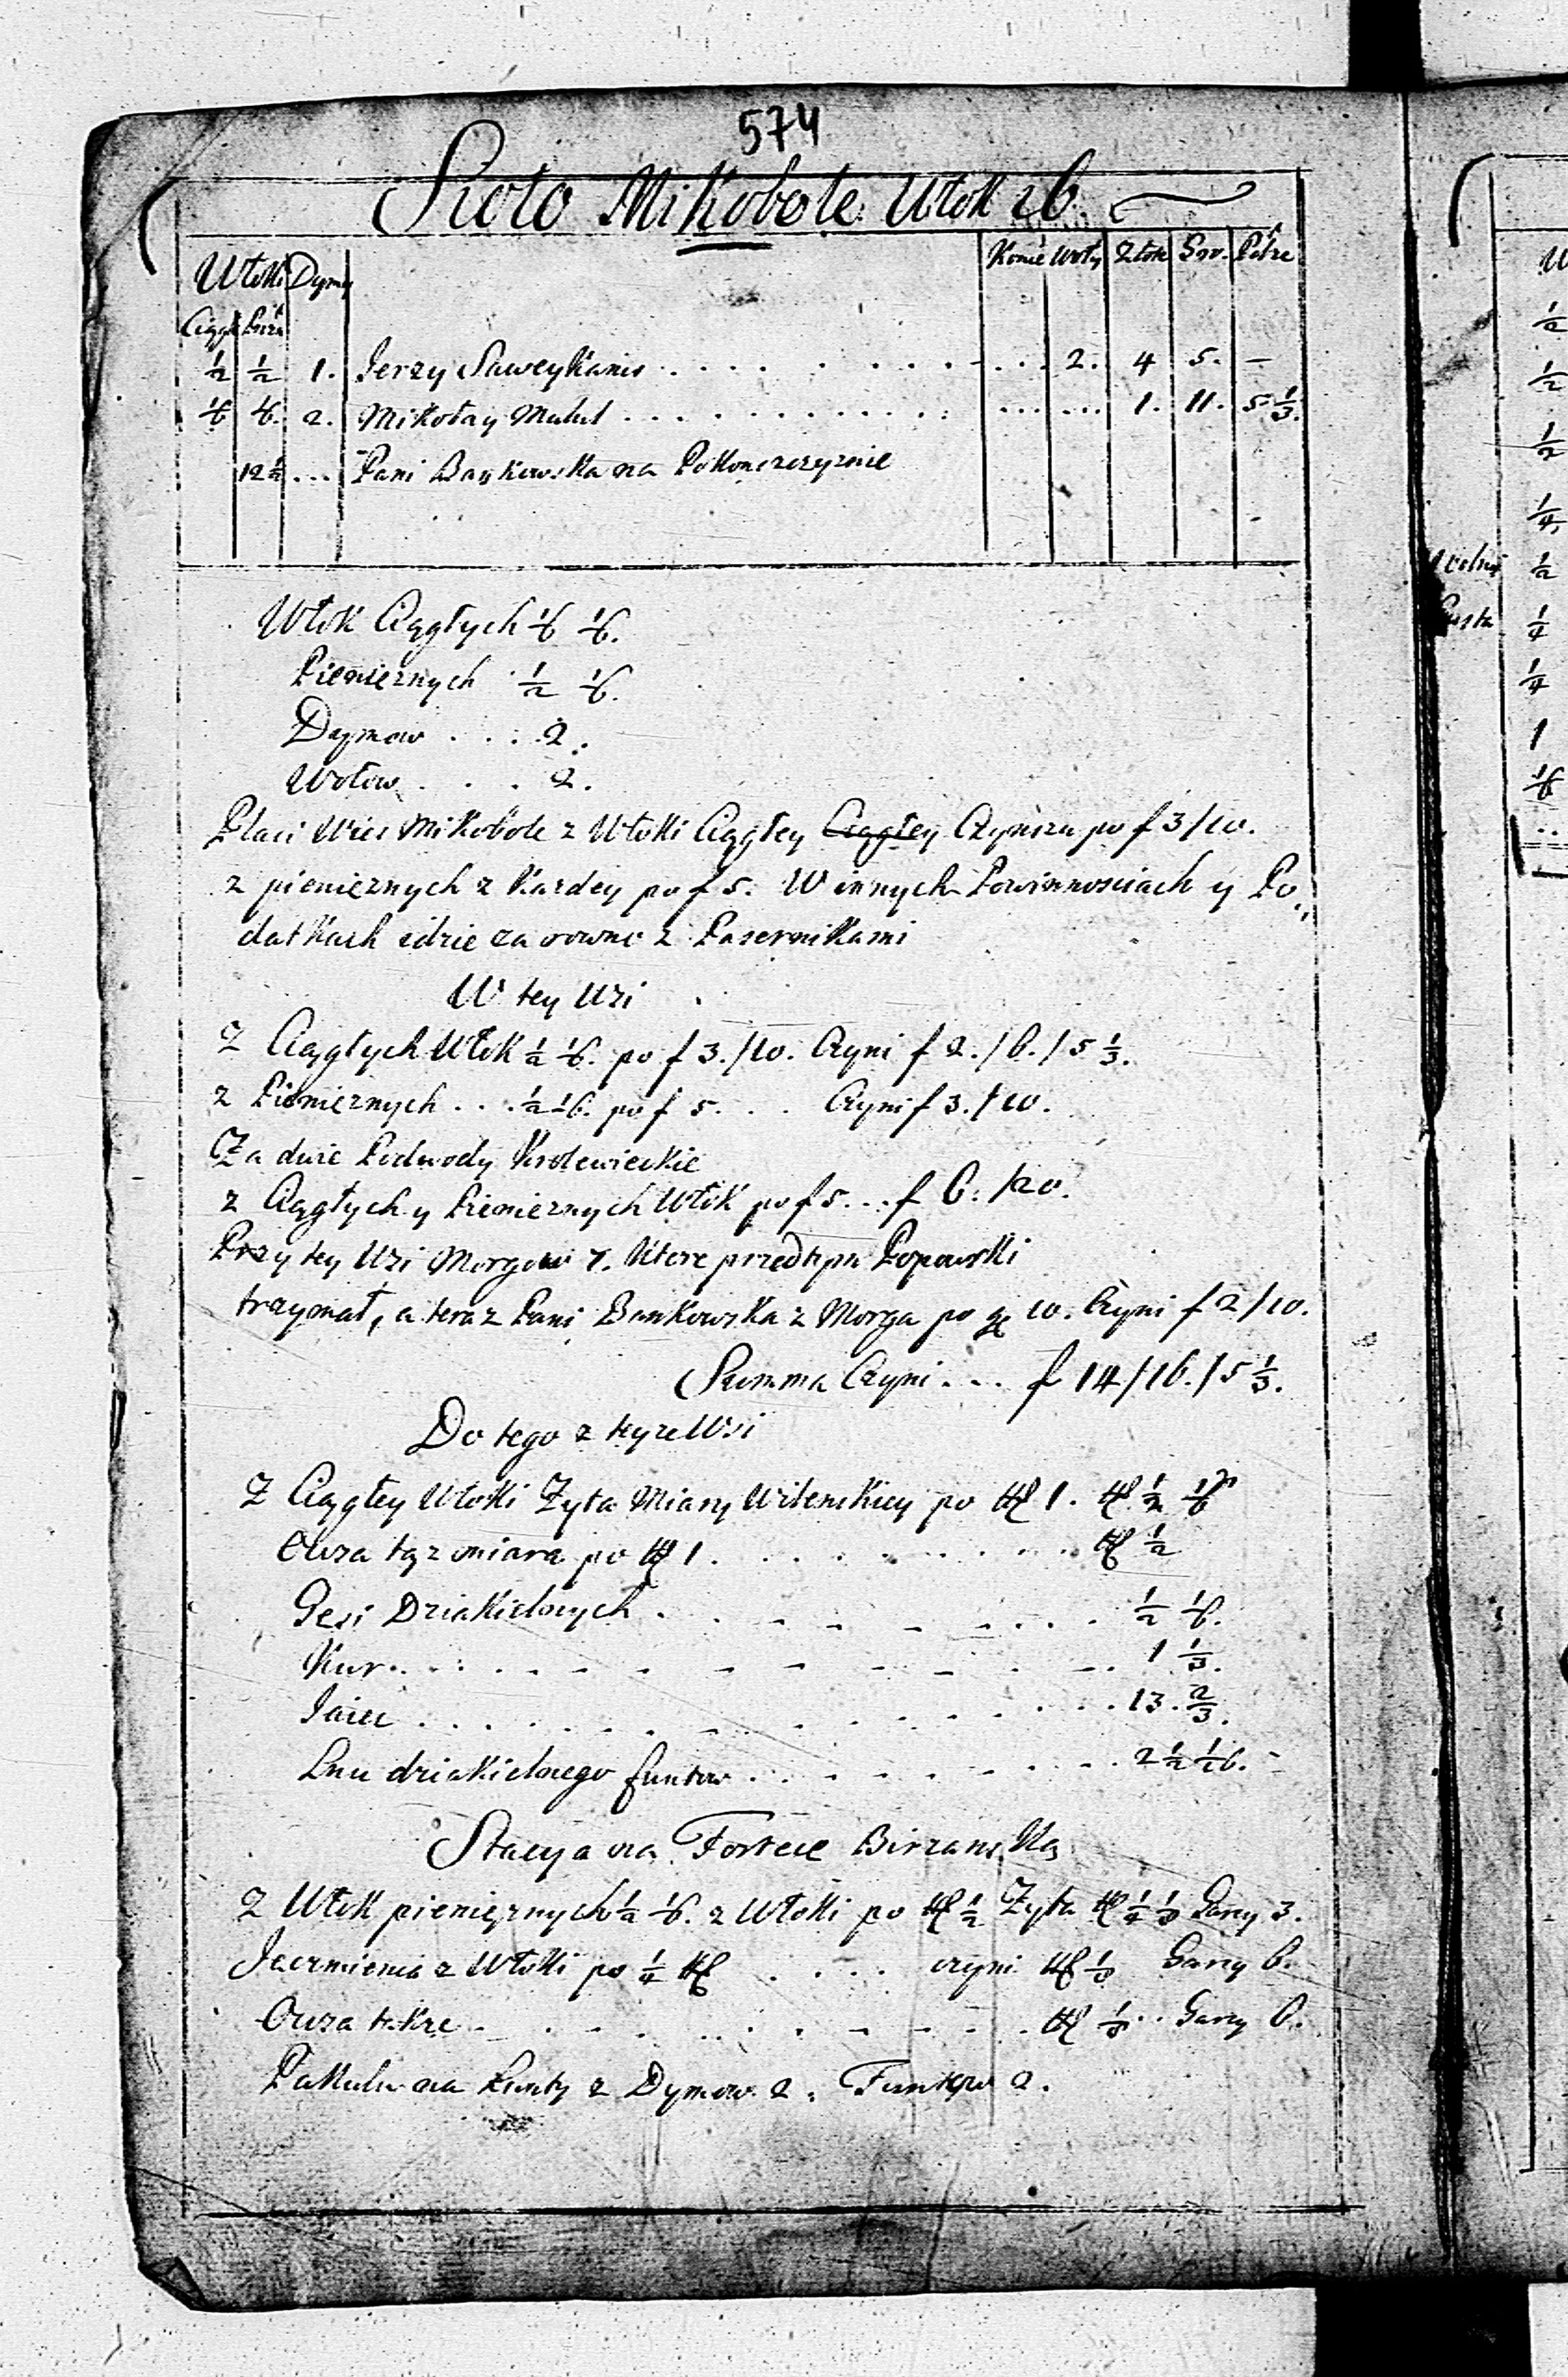 574
Sioło Mikobole Włok 26
Włoki Dymy Konie Woły Złote Gro. Półże
Ciągł. Pień.
1/2 1/2 1. Jerzy Saweykanis . . . . 2. 4 5. —
1/6 1/6. 2. Mikołay Mulul . . . . . . 1. 11. 5 1/3.
12 1/2 ... Pani Bąkowska na Półkonszczyznie
Włok Ciągłych 1/6 1/6.
Pienieznych 1/2 1/6.
Dymow . . . . 2.
Wołow . . . 2.
Płaci Wies Mikobole z Włoki Ciągłey Ciągłey Czynszu po f 3/10.
z pienieznych z Kazdey po f 5. W innych Powinnosciach y Po„
datkach idzie za rowno z Paszernikami
W tey Wsi
Z Ciągłych Włok 1/2 1/6. po f 3./10. Czyni f 2./6./5 1/3.
z Pienieznych . . . 1/2 1/6. po f 5. . . Czyni f 3./10.
Za dwie Podwody Krolewieckie
z Ciągłych y Pienieznych Włok po f 5. .. f 6./20.
Przy tey Wsi Morgow 7. Ktore przedtym Popowski
trzymał, a teraz Pani Bankowska z Morga po g 10. Czyni f 2/10.
Summa Czyni . . . f 14/16./5 1/3.
Do tego z teyze Wsi
Z Ciągłey Włoki Zyta Miary Wilenskiey po 1. 1/2 1/6
Owsa tąz miara po 1 . . . . . . . . . 1/2
Gęsi Dziakielnych . . . . . . . . 1/2 1/6.
Kur . . . . . . . . . . . . 1 1/3.
Jaiec . . . . . . . . . . . . 13. 2/3.
Lnu dziakielnego funtow . . . . . . . . 2 1/2 1/6.
Stacya na Fortece Birzanską
Z Włok pienięznych 1/2 1/6. z Włoki po 1/2 Zyta 1/4 1/8 Garcy 3.
Jęczmienia z Włoki po 1/4 . . . . czyni 1/8 Garcy 6.
Owsa takze . . . . . . . . . 1/8 .. Garcy 6.
Pakulu na Lunty z Dymow 2. Funtow 2.
1/2
1/2
1/2
1/4
Wolna 1/2
Pusta 1/4
1/4
1
1/6